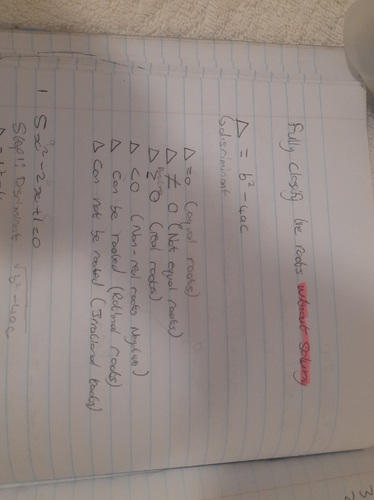 Fully classify the roots without solving
Δ = b² - 4ac
↳ discriminant
Δ = 0 (equal roots)
Δ ≠ 0 (Not equal roots)
Δ ≥ 0 (real roots)
Δ < 0 (Non-real roots Negative)
Δ can be rooted (Rational roots)
Δ can not be rooted (Irrational roots)
1 5x² - 2x + 1 = 0
Step 1: Discriminant √b² - 4ac
3
2